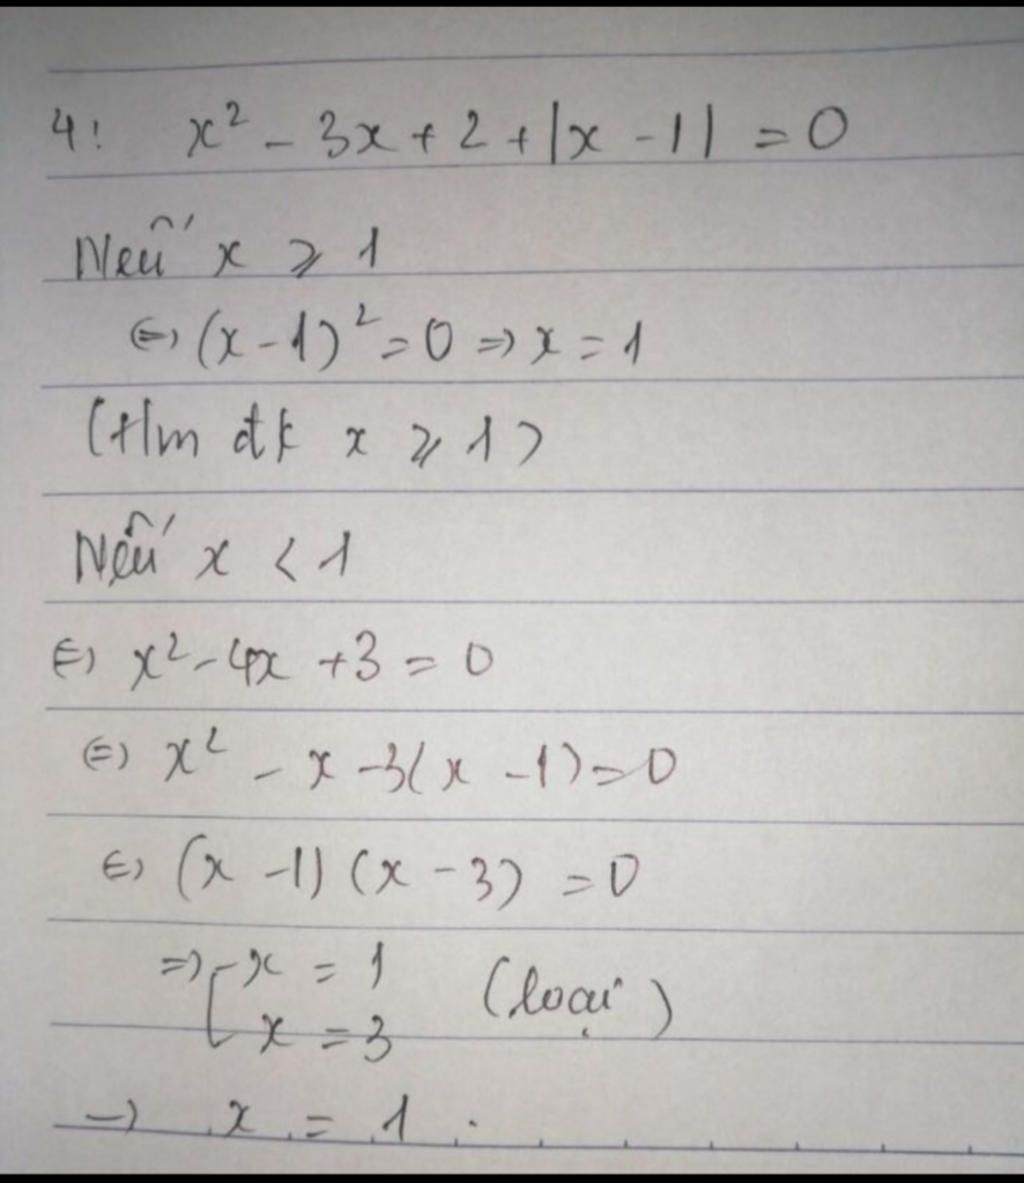 4! x² - 3x + 2 + |x - 1| = 0
Nếu x ⩾ 1
⇔ (x - 1)² = 0 ⇒ x = 1
(t/m đk x ⩾ 1)
Nếu x < 1
⇔ x² - 4x + 3 = 0
⇔ x² - x - 3(x - 1) = 0
⇔ (x - 1) (x - 3) = 0
⇒ [ x = 1
x = 3 (loại)
→ x = 1.